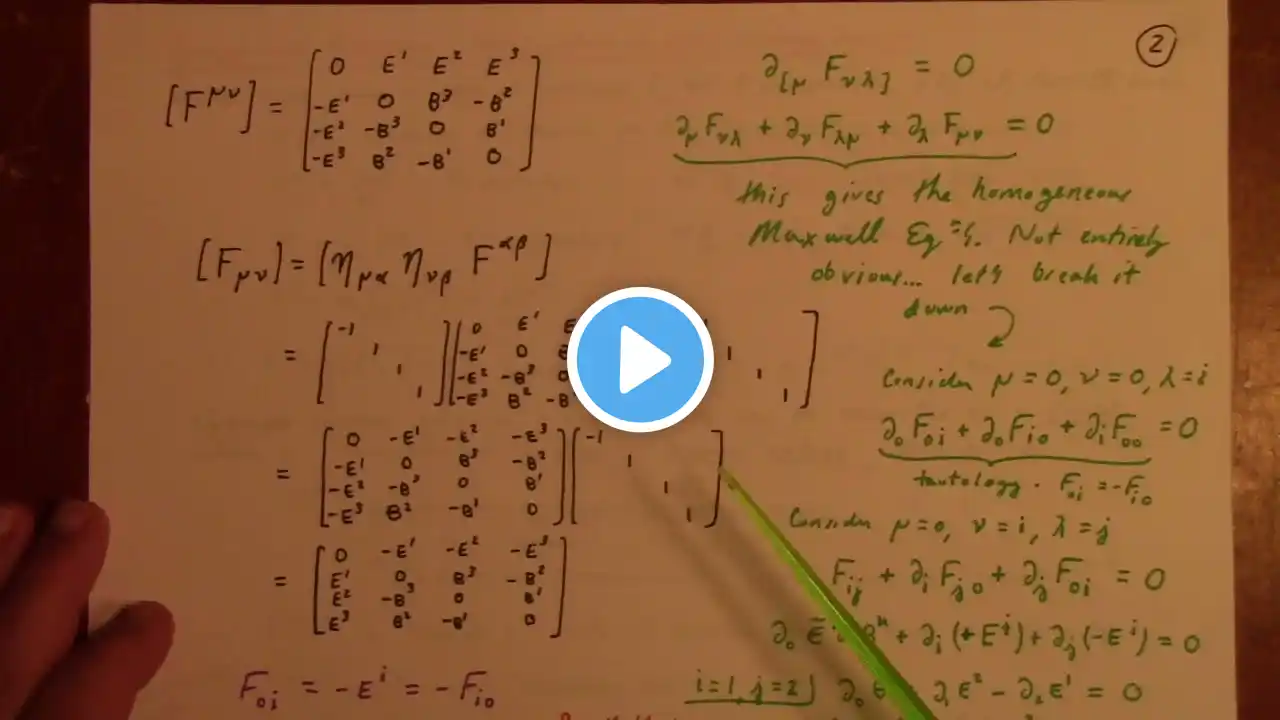 ②
[F^μν] = [ 0 E¹ E² E³
-E¹ 0 B³ -B²
-E² -B³ 0 B¹
-E³ B² -B¹ 0 ]
[F_μν] = [η_μα η_νβ F^αβ]
= [ -1
1
1
1 ] [ 0 E¹
-E¹ 0
-E² -B³ 0
-E³ B² -B¹
1
1
1 ]
= [ 0 -E¹ -E² -E³
-E¹ 0 B³ -B²
-E² -B³ 0 B¹
-E³ B² -B¹ 0 ] [ -1
1
1
1 ]
= [ 0 -E¹ -E² -E³
E¹ 0 B³ -B²
E² -B³ 0 B¹
E³ B² -B¹ 0 ]
F_0i = -E^i = -F_i0
∂_[μ F_νλ] = 0
∂_μ F_νλ + ∂_ν F_λμ + ∂_λ F_μν = 0
this gives the homogeneous
Maxwell Eq^n s. Not entirely
obvious... let's break it
down
Consider μ=0, ν=0, λ=i
∂_0 F_0i + ∂_0 F_i0 + ∂_i F_00 = 0
tautology. F_0i = -F_i0
Consider μ=0, ν=i, λ=j
F_ij + ∂_i F_j0 + ∂_j F_0i = 0
∂_0 + ∂_i (+E^j) + ∂_j (-E^i) = 0
i=1, j=2 ∂_0 ∂_1 E² - ∂_2 E¹ = 0